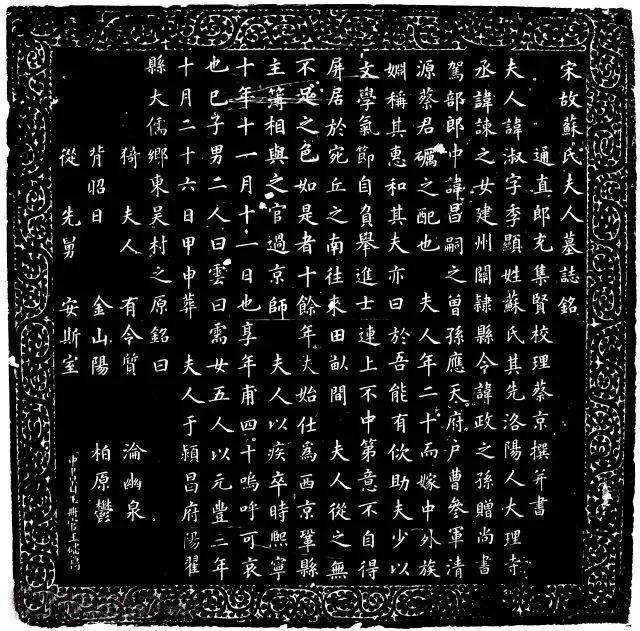 宋故蘇氏夫人墓誌銘
通直郎充集賢校理蔡京撰并書
夫人諱淑字季顯姓蘇氏其先洛陽人大理寺
丞諱諫之女建州關隷縣令諱政之孫贈尚書
駕部郎中諱昌嗣之曾孫應天府户曹參軍清
源蔡君礪之配也 夫人年二十而嫁中外族
婣稱其惠和其夫亦曰於吾能有佽助夫少以
文學氣節自負舉進士連上不中第意不自得
屏居於宛丘之南往來田畝間 夫人從之無
不足之色如是者十餘年夫始仕為西京鞏縣
主簿相與之官過京師 夫人以疾卒時熙寧
十年十一月十一日也享年甫四十嗚呼可哀
也已子男二人曰雲曰需女五人以元豐二年
十月二十六日甲申葬 夫人于潁昌府陽翟
縣大儒鄉東吳村之原銘曰
猗夫人 有令質 淪幽泉
背昭日 金山陽 柏原鬱
從先舅 安斯室